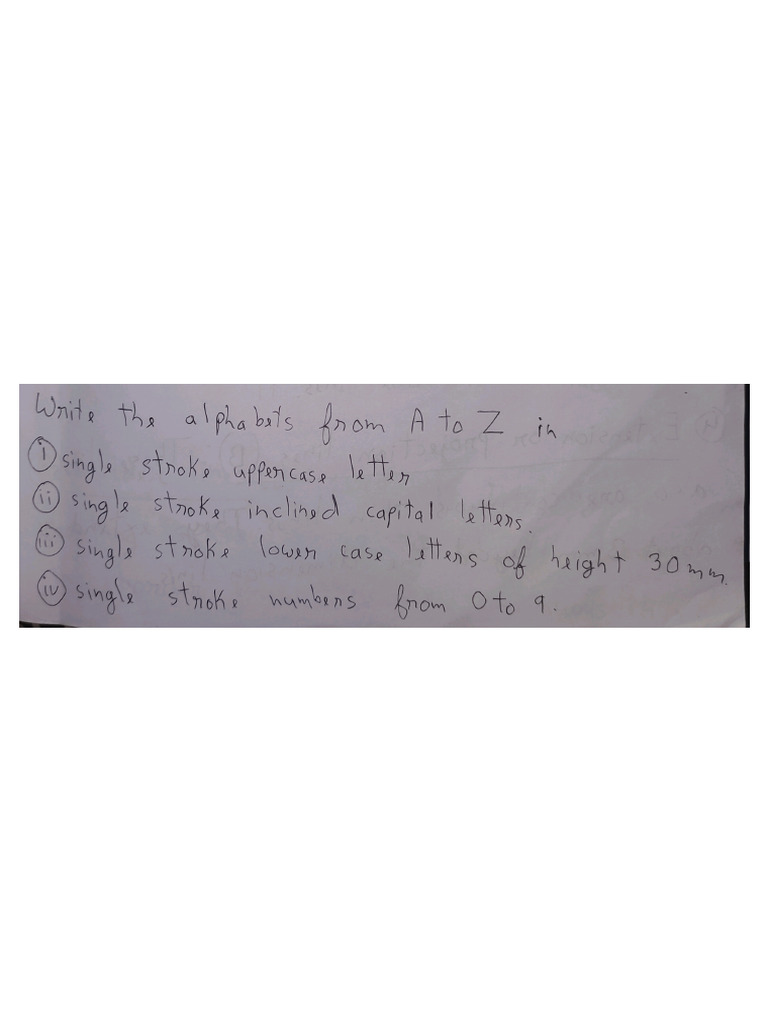 Write the alphabets from A to Z in
i single stroke uppercase letter
ii single stroke inclined capital letters.
iii single stroke lower case letters of height 30 mm.
iv single stroke numbers from 0 to 9.